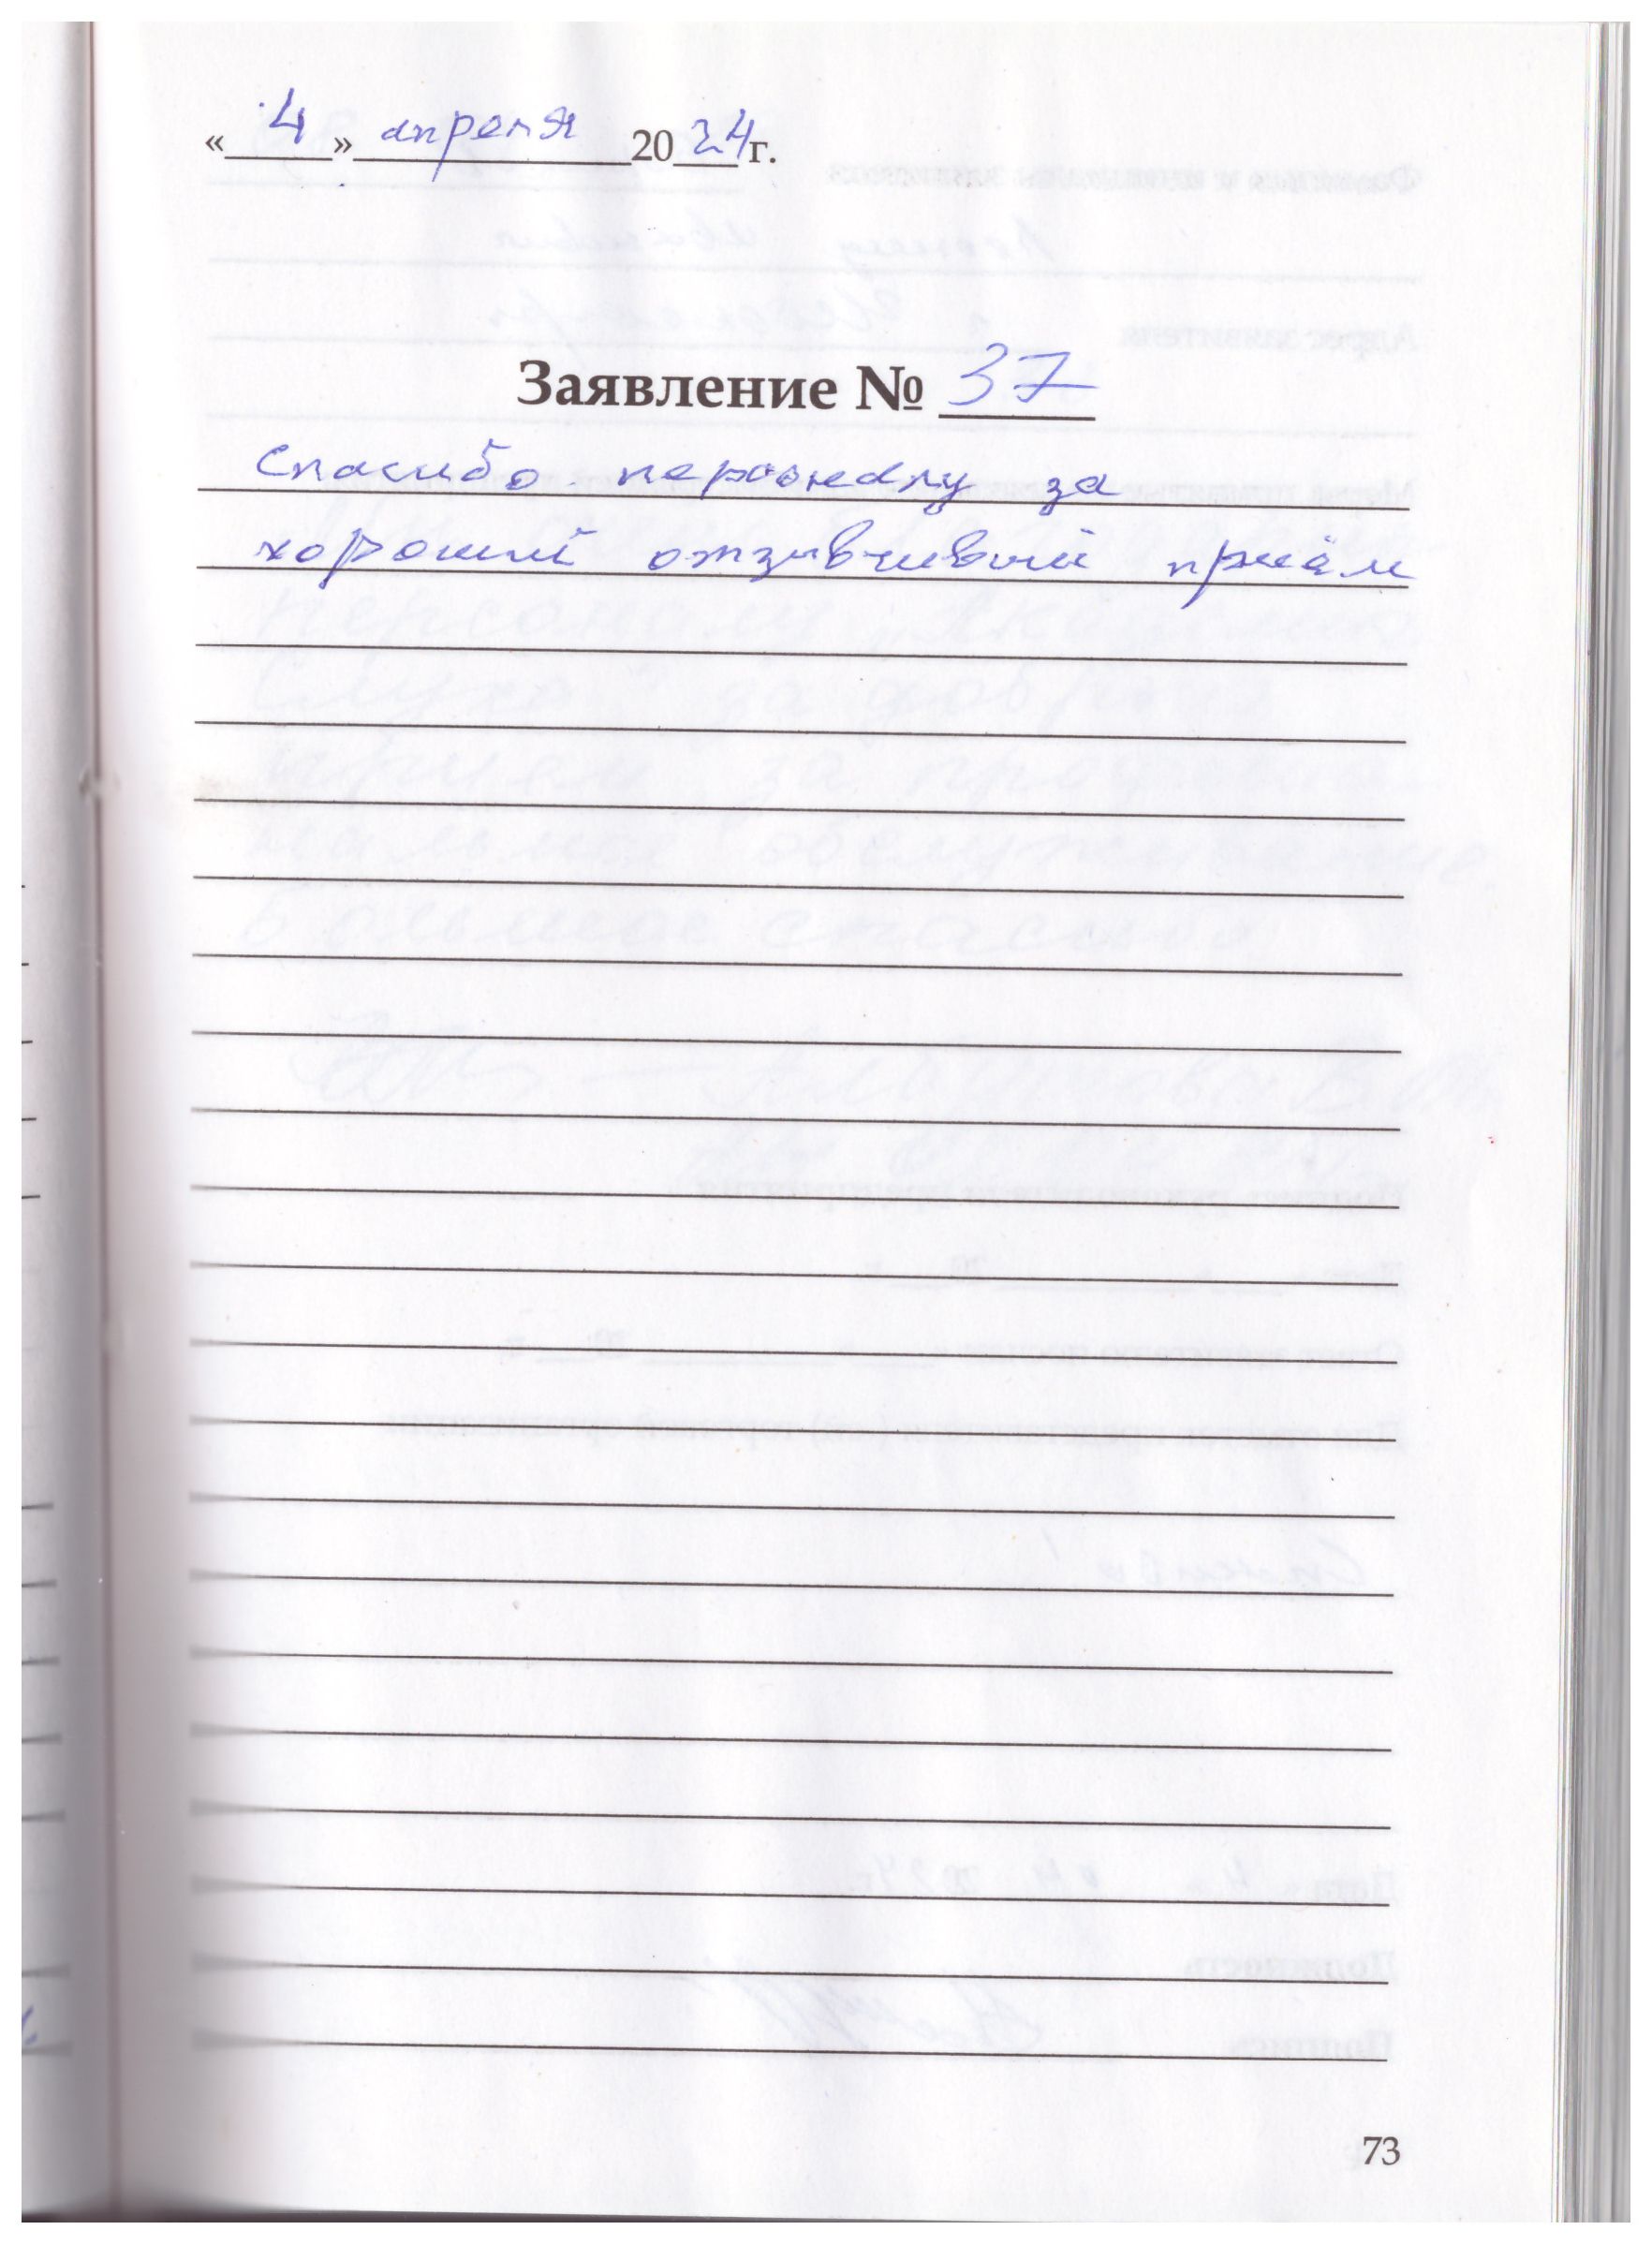 «4» апреля 2024 г.
Заявление № 37
Спасибо персоналу за
хороший отзывчивый приём
73